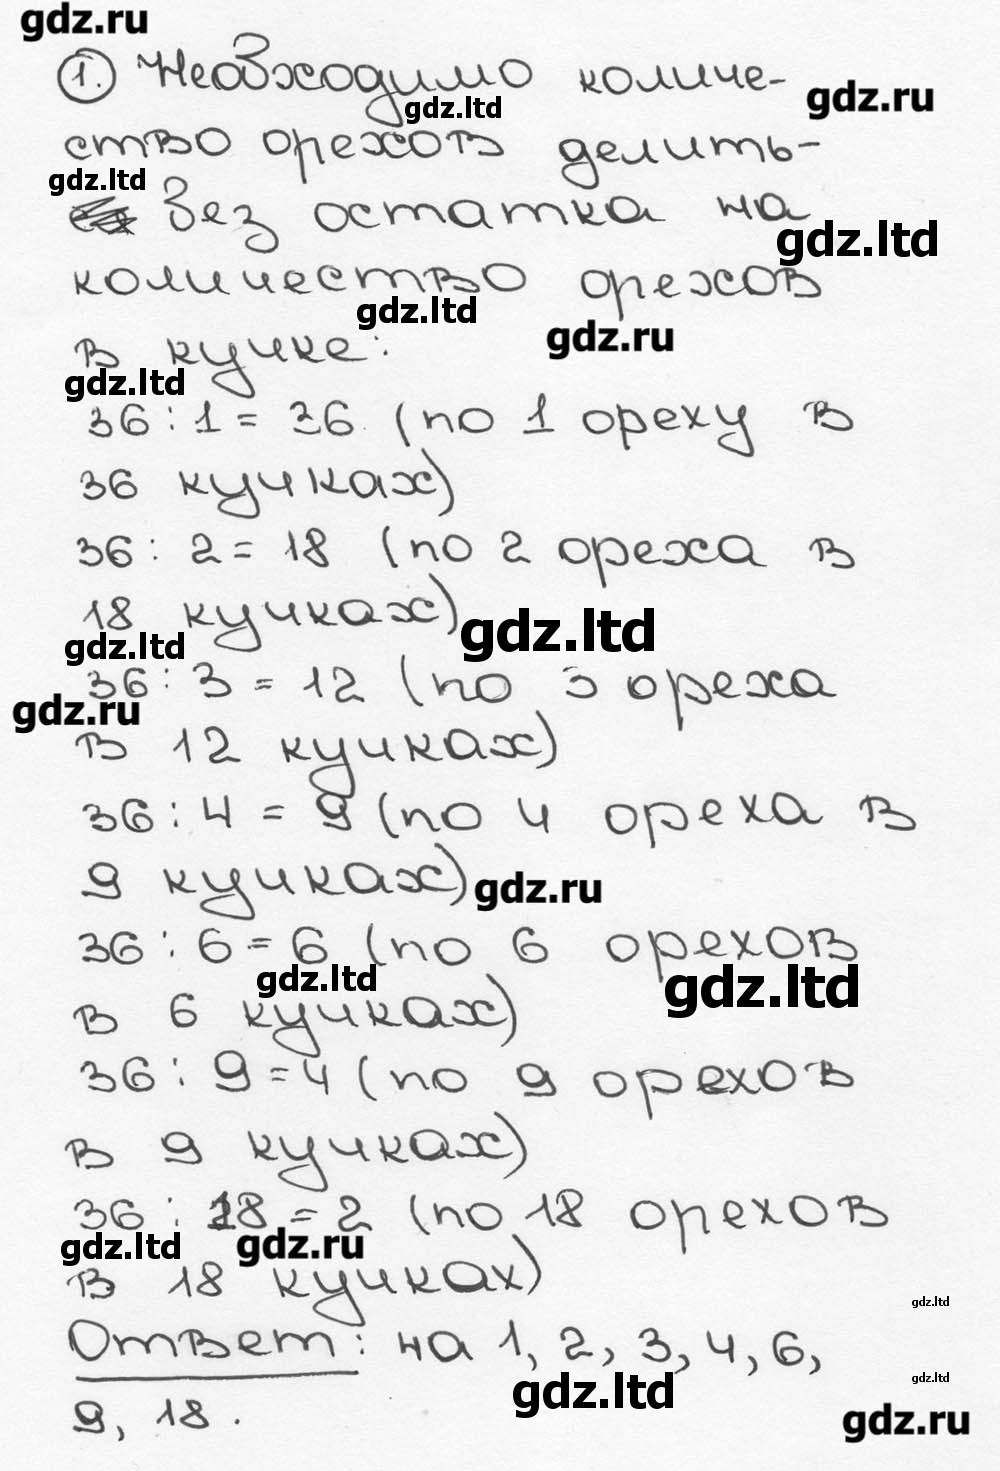 gdz.ru
1. Необходимо количе-
gdz.ltd gdz.ru
ство орехов делить-
gdz.ltd
без остатка на
gdz.ltd
количество орехов
gdz.ltd gdz.ru
в кучке:
gdz.ltd
36 : 1 = 36 (по 1 ореху в
36 кучках)
36 : 2 = 18 (по 2 ореха в
18 кучках)
gdz.ltd
gdz.ltd
36 : 3 = 12 (по 3 ореха
gdz.ru
в 12 кучках)
36 : 4 = 9 (по 4 ореха в
9 кучках)
gdz.ru
36 : 6 = 6 (по 6 орехов
gdz.ltd gdz.ltd
в 6 кучках)
36 : 9 = 4 (по 9 орехов
в 9 кучках)
36 : 18 = 2 (по 18 орехов
gdz.ltd gdz.ru
в 18 кучках)
gdz.ltd
Ответ: на 1, 2, 3, 4, 6,
gdz.ltd gdz.ltd
9, 18.
gdz.ru